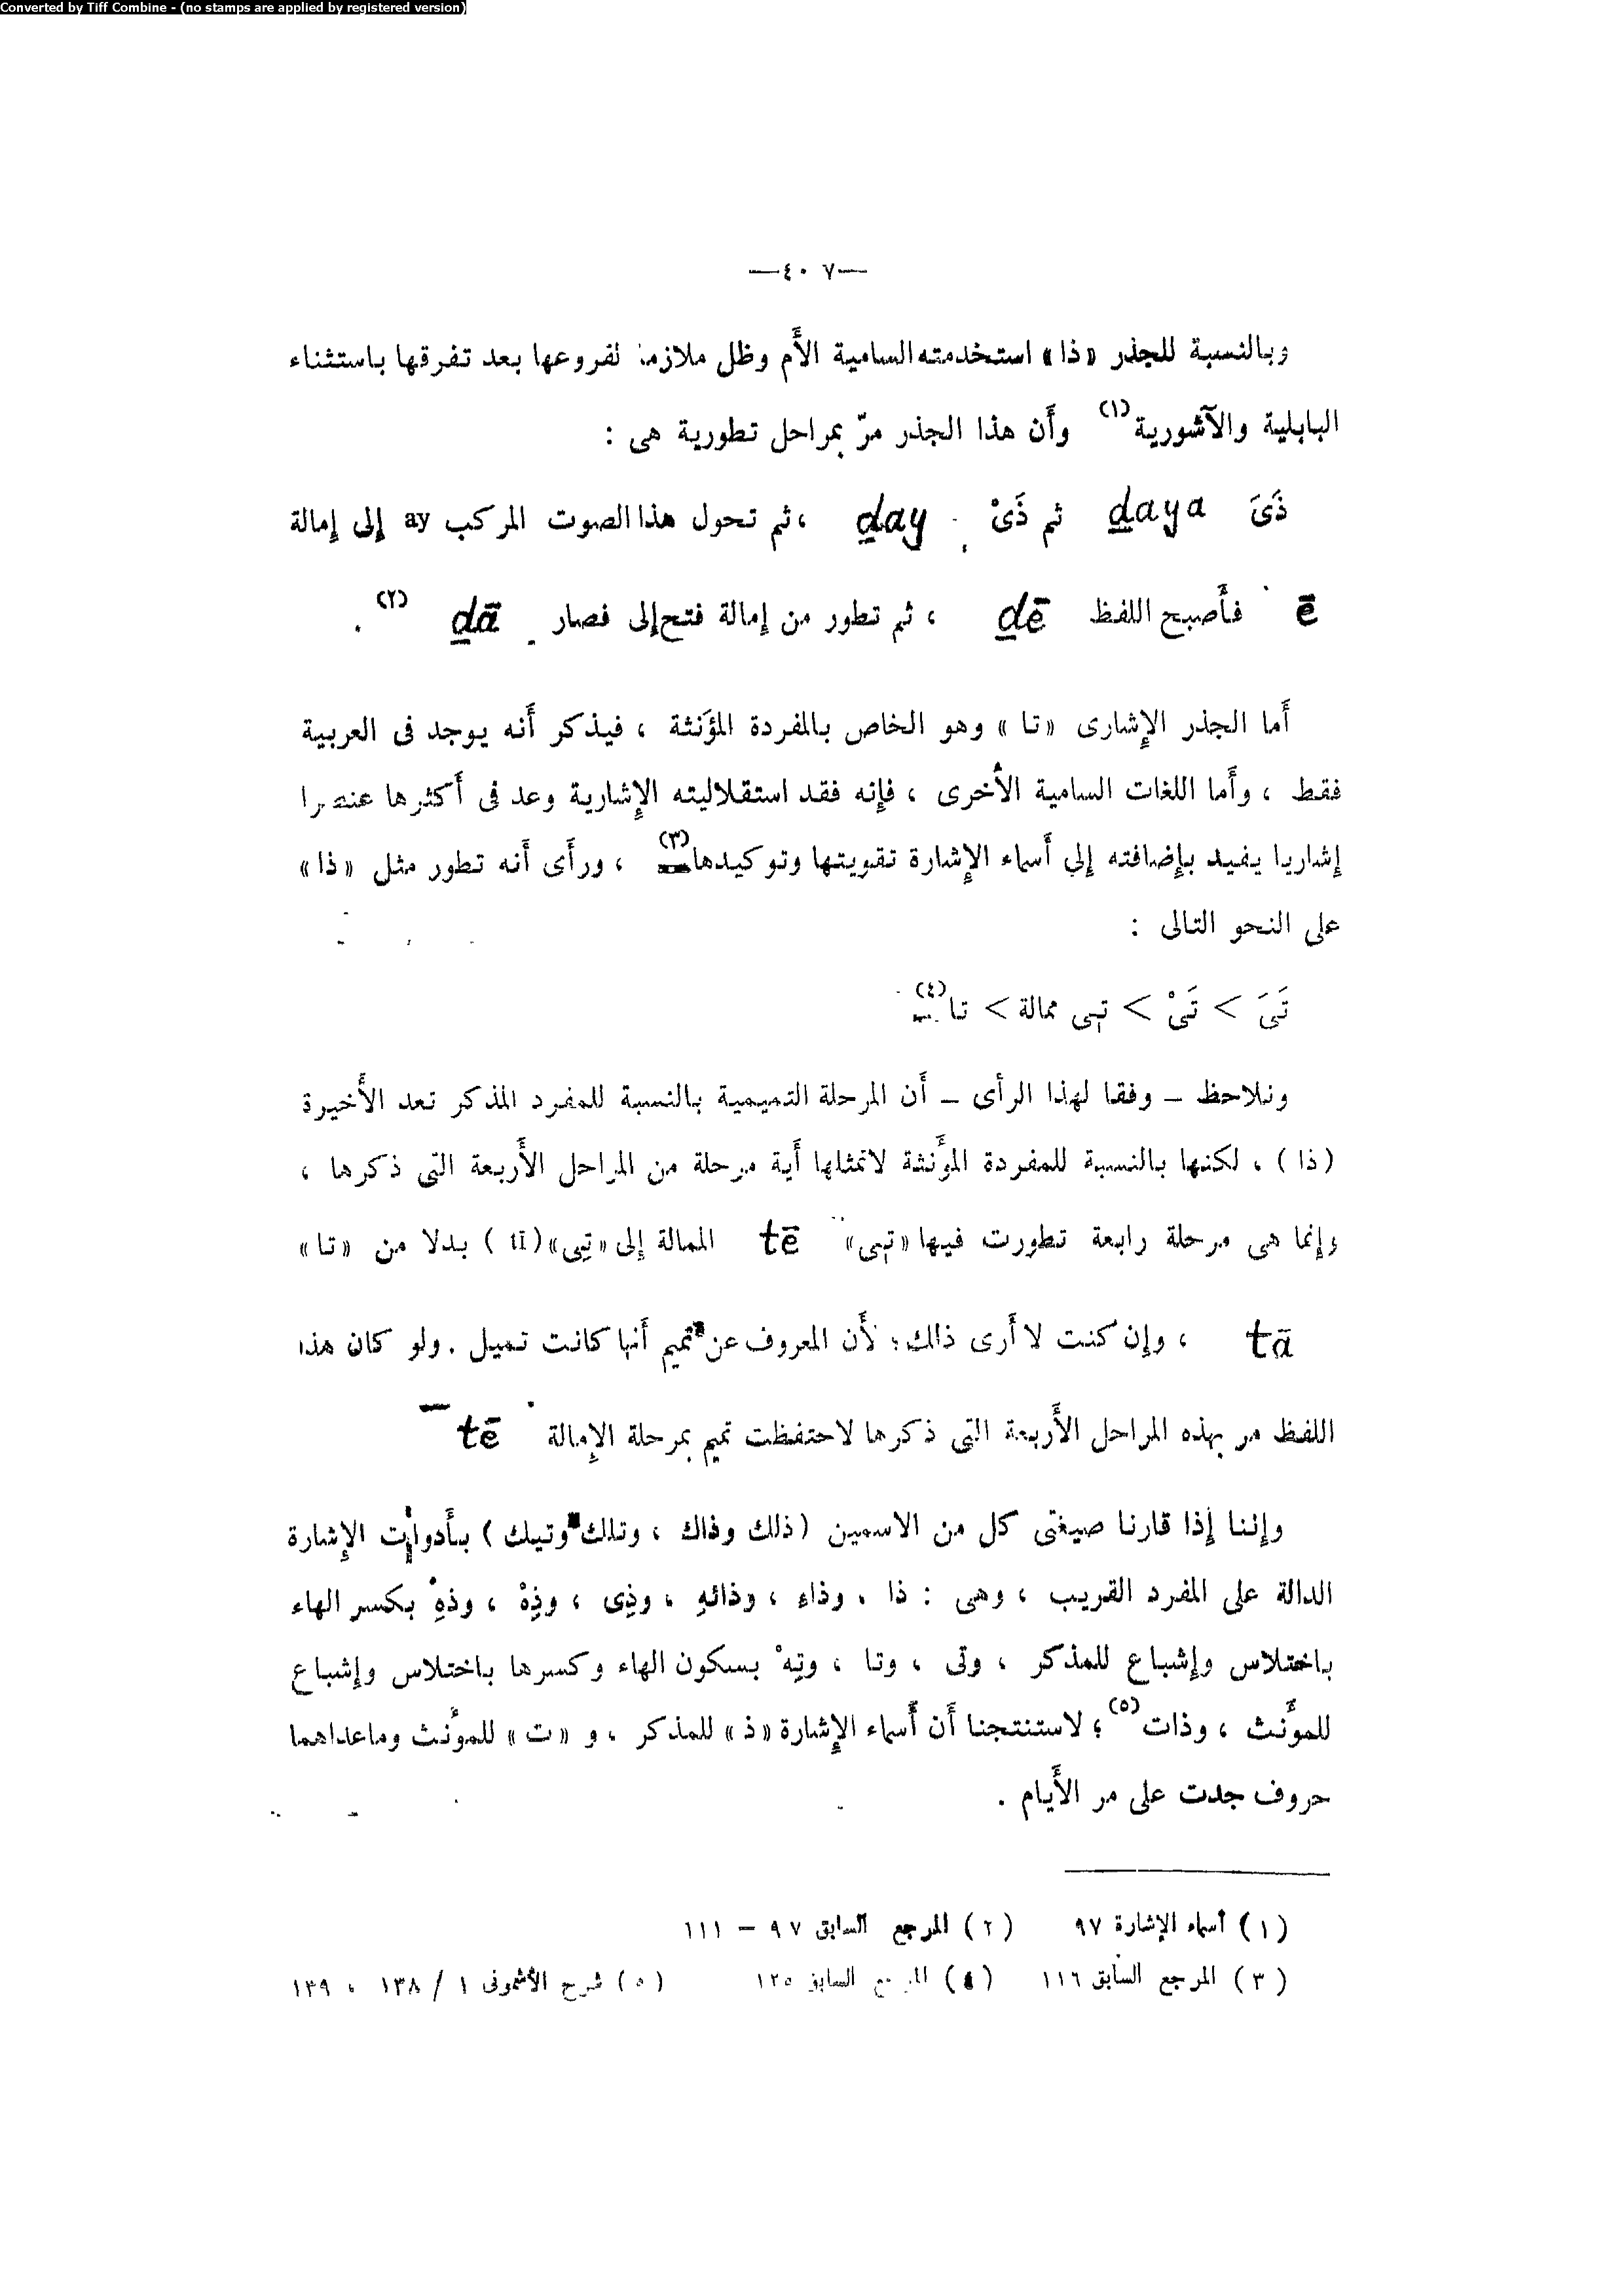 Converted by Tiff Combine - (no stamps are applied by registered version)
—٤٠٧—
وبالنسبة للجذر «ذا» استخدمته السامية الأَم وظل ملازما لفروعها بعد تفرقها باستثناء
البابلية والآشورية(١) وأَن هذا الجذر مرّ بمراحل تطورية هى :
ذَىَ ḏaya ثم ذَىْ ḏay ، ثم تحول هذا الصوت المركب ay إلى إمالة
ē فأَصبح اللفظ ḏē ، ثم تطور من إمالة فتح إلى فصار ḏā (٢) .
أَما الجذر الإِشارى «تا» وهو الخاص بالمفردة المؤَنثة ، فيذكر أَنه يوجد فى العربية
فقط ، وأَما اللغات السامية الأُخرى ، فإِنه فقد استقلاليته الإِشارية وعد فى أَكثرها عنصرا
إِشاريا يفيد بإِضافته إلى أَسماء الإِشارة تقويتها وتوكيدها(٣) ، ورأَى أَنه تطور مثل «ذا»
على النحو التالى :
تَىَ > تَىْ > تِى ممالة > تا(٤)
ونلاحظ – وفقا لهذا الرأى – أَن المرحلة التميمية بالنسبة للمفرد المذكر تعد الأَخيرة
(ذا) ، لكنها بالنسبة للمفردة المؤَنثة لاتمثلها أَية مرحلة من المراحل الأَربعة التى ذكرها ،
وإنما هى مرحلة رابعة تطورت فيها «تِى» tē الممالة إلى «تِى» (tī) بدلا من «تا»
tā ، وإن كنت لا أَرى ذالك ؛ لأَن المعروف عن تميم أَنها كانت تميل . ولو كان هذا
اللفظ مر بهذه المراحل الأَربعة التى ذكرها لاحتفظت تميم بمرحلة الإِمالة tē
وإننا إذا قارنا صيغتى كل من الاسمين (ذلك وذاك ، وتلك وتيك) بأَدوات الإِشارة
الدالة على المفرد القريب ، وهى : ذا ، وذاءِ ، وذائهِ ، وذِى ، وذِهْ ، وذهِ بكسر الهاء
باختلاس وإشباع للمذكر ، وتى ، وتا ، وتِهْ بسكون الهاء وكسرها باختلاس وإشباع
للمؤَنث ، وذات(٥) ؛ لاستنتجنا أَن أَسماء الإِشارة «ذ» للمذكر ، و «ت» للمؤَنث وماعداهما
حروف جدت على مر الأَيام .
(١) أسماء الإشارة ٩٧ (٢) المرجع السابق ٩٧ – ١١١
(٣) المرجع السابق ١١٦ (٤) المرجع السابق ١٢٥ (٥) شرح الأشمونى ١ / ١٣٨ ، ١٣٩